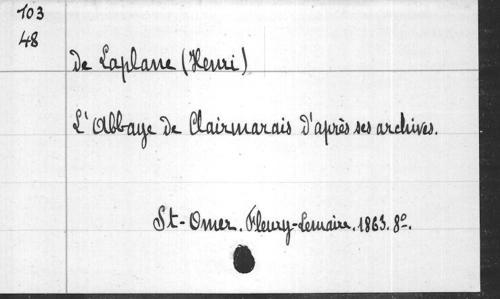 103
48
de Laplane (Henri)
L'Abbaye de Clairmarais d'après ses archives.
St-Omer. Fleury-Lemaire. 1863. 8º.